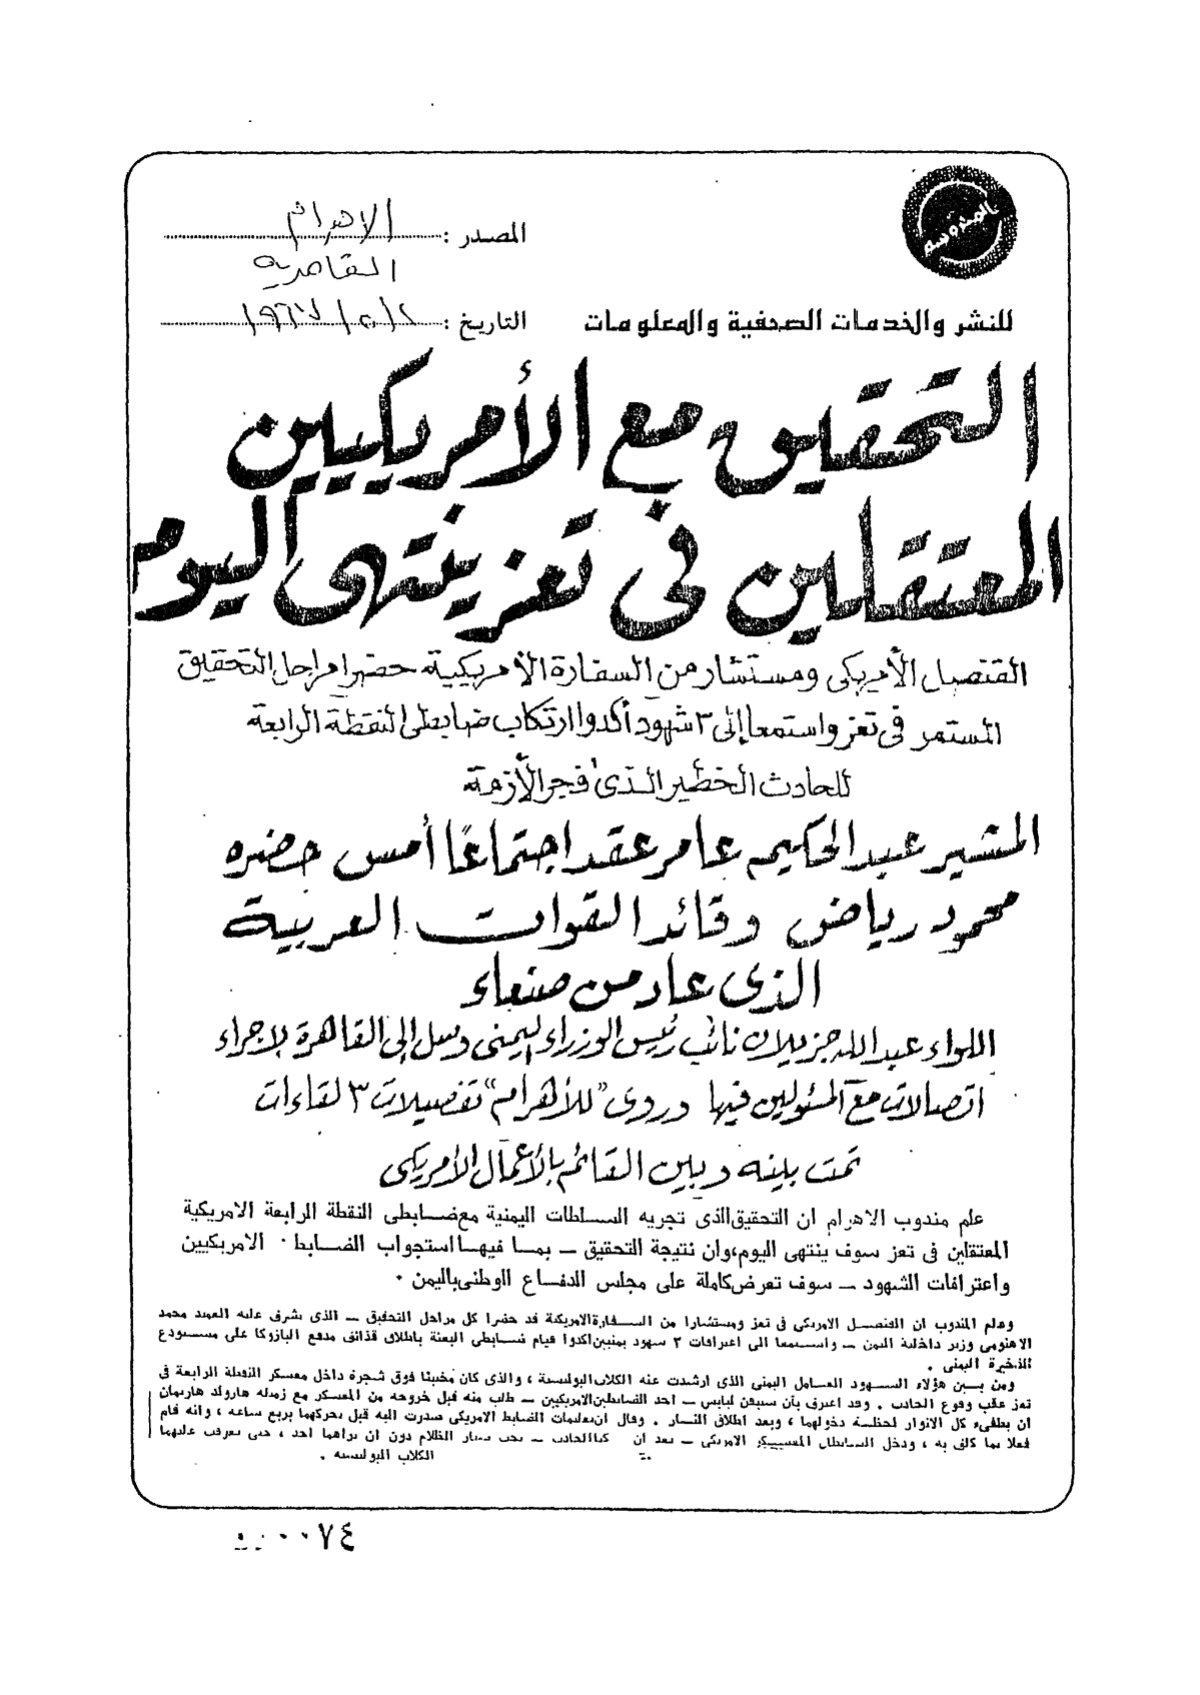 المحروسة
المصدر : الاهرام
القاهرية
للنشر والخدمات الصحفية والمعلومات
التاريخ : ٢/٥/١٩٦٧
التحقيق مع الأمريكيين
المعتقلين فى تعز ينتهى اليوم
القنصل الأمريكى ومستشار من السفارة الأمريكية حضرا مراحل التحقيق
المستمر فى تعز واستمعا إلى ٣ شهود أكدوا ارتكاب ضابطى النقطة الرابعة
للحادث الخطير الذى فجر الأزمة
المشير عبد الحكيم عامر عقد اجتماعًا أمس حضره
محمود رياض وقائد القوات العربية
الذى عاد من صنعاء
اللواء عبد الله جزيلان نائب رئيس الوزراء اليمنى وصل إلى القاهرة لإجراء
اتصالات مع المسئولين فيها وروى "للأهرام" تفصيلات ٣ لقاءات
تمت بينه وبين القائم بالأعمال الأمريكى
علم مندوب الاهرام ان التحقيق الذى تجريه السلطات اليمنية مع ضابطى النقطة الرابعة الامريكية
المعتقلين فى تعز سوف ينتهى اليوم، وان نتيجة التحقيق – بما فيها استجواب الضابط الامريكيين
واعترافات الشهود – سوف تعرض كاملة على مجلس الدفاع الوطنى باليمن .
وعلم المندوب ان القنصل الامريكى فى تعز ومستشارا من السفارة الامريكية قد حضرا كل مراحل التحقيق – الذى يشرف عليه العميد محمد
الاهنومى وزير داخلية اليمن – واستمعا الى اعترافات ٣ شهود يمنيين اكدوا قيام ضابطى البعثة باطلاق قذائف مدفع البازوكا على مستودع
الذخيرة اليمنى .
ومن بين هؤلاء الشهود العامل اليمنى الذى ارشدت عنه الكلاب البوليسية ، والذى كان مختبئا فوق شجرة داخل معسكر النقطة الرابعة فى
تعز عقب وقوع الحادث . وقد اعترف بأن ستيفن ليابس – احد الضابطين الامريكيين – طلب منه قبل خروجه من المعسكر مع زميله هارولد هاريمان
ان يطفىء كل الانوار لحظة دخولهما ، وبعد اطلاق النار . وقال ان تعليمات الضابط الامريكى صدرت اليه قبل تحركهما بربع ساعة ، وانه قام
فعلا بما كلف به ، ودخل الضابطان المعسكر الامريكى – بعد ان الحادث – تحت ستار الظلام دون ان يراهما احد ، حتى تعرفت عليهما
الكلاب البوليسية .
٠٠٧٤